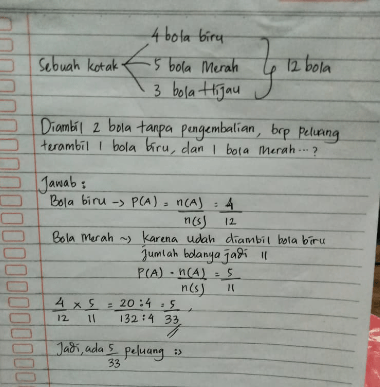 4 bola biru
Sebuah kotak 5 bola Merah 12 bola
3 bola Hijau
Diambil 2 bola tanpa pengembalian, brp peluang
terambil 1 bola biru, dan 1 bola merah...?
Jawab :
Bola biru → P(A) = n(A) = 4
n(s) 12
Bola Merah ~> Karena udah diambil bola biru
Jumlah bolanya jadi 11
P(A) = n(A) = 5
n(s) 11
4 x 5 = 20 : 4 = 5
12 11 132 : 4 33
Jadi, ada 5 peluang :>
33